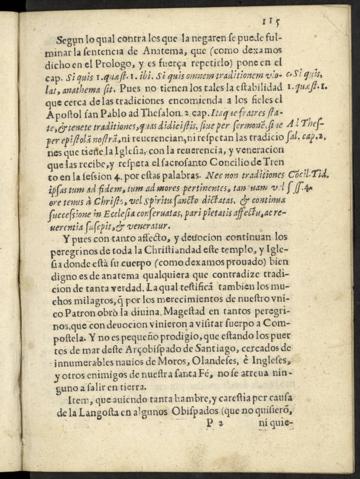 115
Segun lo qual contra los que la negaren se puede ful-
minar la sentencia de Anatema, que (como dexamos
dicho en el Prologo, y es fuerça repetirlo) pone en el
cap. Si quis 1. quæst. 1. ibi. Si quis omnem traditionem vio-
lat, anathema sit. Pues no tienen los tales la estabilidad
que cerca de las tradiciones encomienda a los fieles el
Apostol san Pablo ad Thesalon. 2. cap. Itaque fratres sta-
te, & tenete traditiones, quas didicistis, siue per sermonē. siue
per epistolā nostrā, ni reuerencian, ni respetan las tradicio
nes que tiene la Iglesia, con la reuerencia, y veneracion
que las recibe, y respeta el sacrosanto Concilio de Tren
to en la session 4. por estas palabras. Nec non traditiones
ipsas tum ad fidem, tum ad mores pertinentes, tan uam vel
ore tenus à Christo, vel Spiritu sancto dictatas. & continua
successione in Ecclesia conseruatas, pari pietatis affectu, ac re-
uerentia suscepit, & veneratur.
Y pues con tanto affecto, y deuocion continuan los
peregrinos de toda la Christiandad este templo, y Igle-
sia donde està su cuerpo (como dexamos prouado) bien
digno es de anatema qualquiera que contradize tradi-
cion de tanta verdad. La qual testificā tambien los mu-
chos milagros, q̃ por los merecimientos de nuestro vni
co Patron obrò la diuina. Magestad en tantos peregri-
nos, que con deuocion vinieron a visitar su cuerpo a Com-
postela. Y no es pequeño prodigio, que estando los puer
tos de mar deste Arçobispado de Santiago, cercados de
innumerables nauios de Moros, Olandeses, è Ingleses,
y otros enemigos de nuestra santa Fé, no se atreua nin-
guno a salir en tierra.
Item, que auiendo tanta hambre, y carestia por causa
de la Langosta en algunos Obispados (que no quisierō,
P 2 ni quie-
c. Si quis.
1. quæst. 1.
Al Thes-
sal. cap. 2.
Cōcil. Tid.
sess. 4.